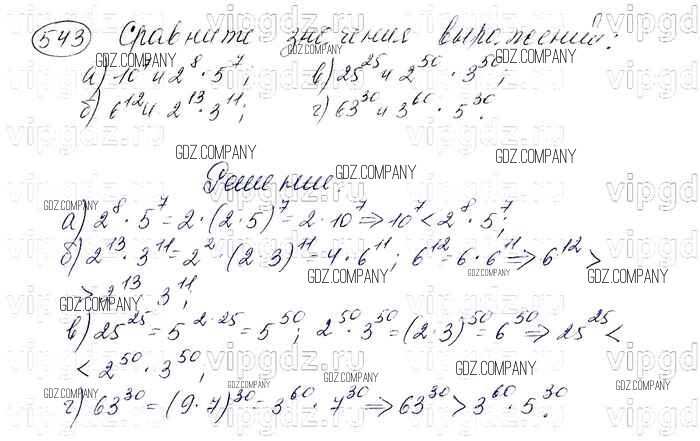 543 Сравните значения выражений:
а) 10⁷ и 2⁸ · 5⁷; в) 25²⁵ и 2⁵⁰ · 3⁵⁰;
б) 6¹² и 2¹³ · 3¹¹; г) 63³⁰ и 3⁶⁰ · 5³⁰.
Решение.
а) 2⁸ · 5⁷ = 2 · (2 · 5)⁷ = 2 · 10⁷ ⇒ 10⁷ < 2⁸ · 5⁷;
б) 2¹³ · 3¹¹ = 2² · (2 · 3)¹¹ = 4 · 6¹¹; 6¹² = 6 · 6¹¹ ⇒ 6¹² >
> 2¹³ · 3¹¹;
в) 25²⁵ = 5²·²⁵ = 5⁵⁰; 2⁵⁰ · 3⁵⁰ = (2 · 3)⁵⁰ = 6⁵⁰ ⇒ 25²⁵ <
< 2⁵⁰ · 3⁵⁰;
г) 63³⁰ = (9 · 7)³⁰ = 3⁶⁰ · 7³⁰ ⇒ 63³⁰ > 3⁶⁰ · 5³⁰.
GDZ.COMPANY
vipgdz.ru